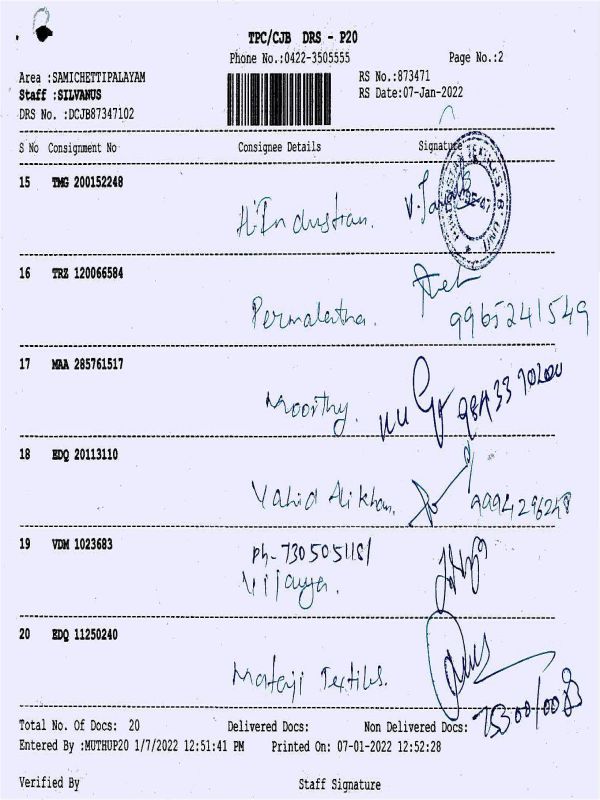 TPC/CJB DRS - P20
Phone No.:0422-3505555
Page No.:2
Area :SAMICHETTIPALAYAM
RS No.:873471
Staff :SILVANUS
RS Date:07-Jan-2022
DRS No. :DCJB87347102
S No Consignment No Consignee Details Signature
15 TMG 200152248
H.Industrian.
16 TRZ 120066584
Permalatha. 9965241549
17 MAA 285761517
Moorthy.
18 EDQ 20113110
Vahid Ali khan. 9994296248
19 VDM 1023683
ph-7305051181
Vijaya.
20 EDQ 11250240
Mataji Textiles.
Total No. Of Docs: 20 Delivered Docs: Non Delivered Docs:
Entered By :MUTHUP20 1/7/2022 12:51:41 PM Printed On: 07-01-2022 12:52:28
Verified By Staff Signature